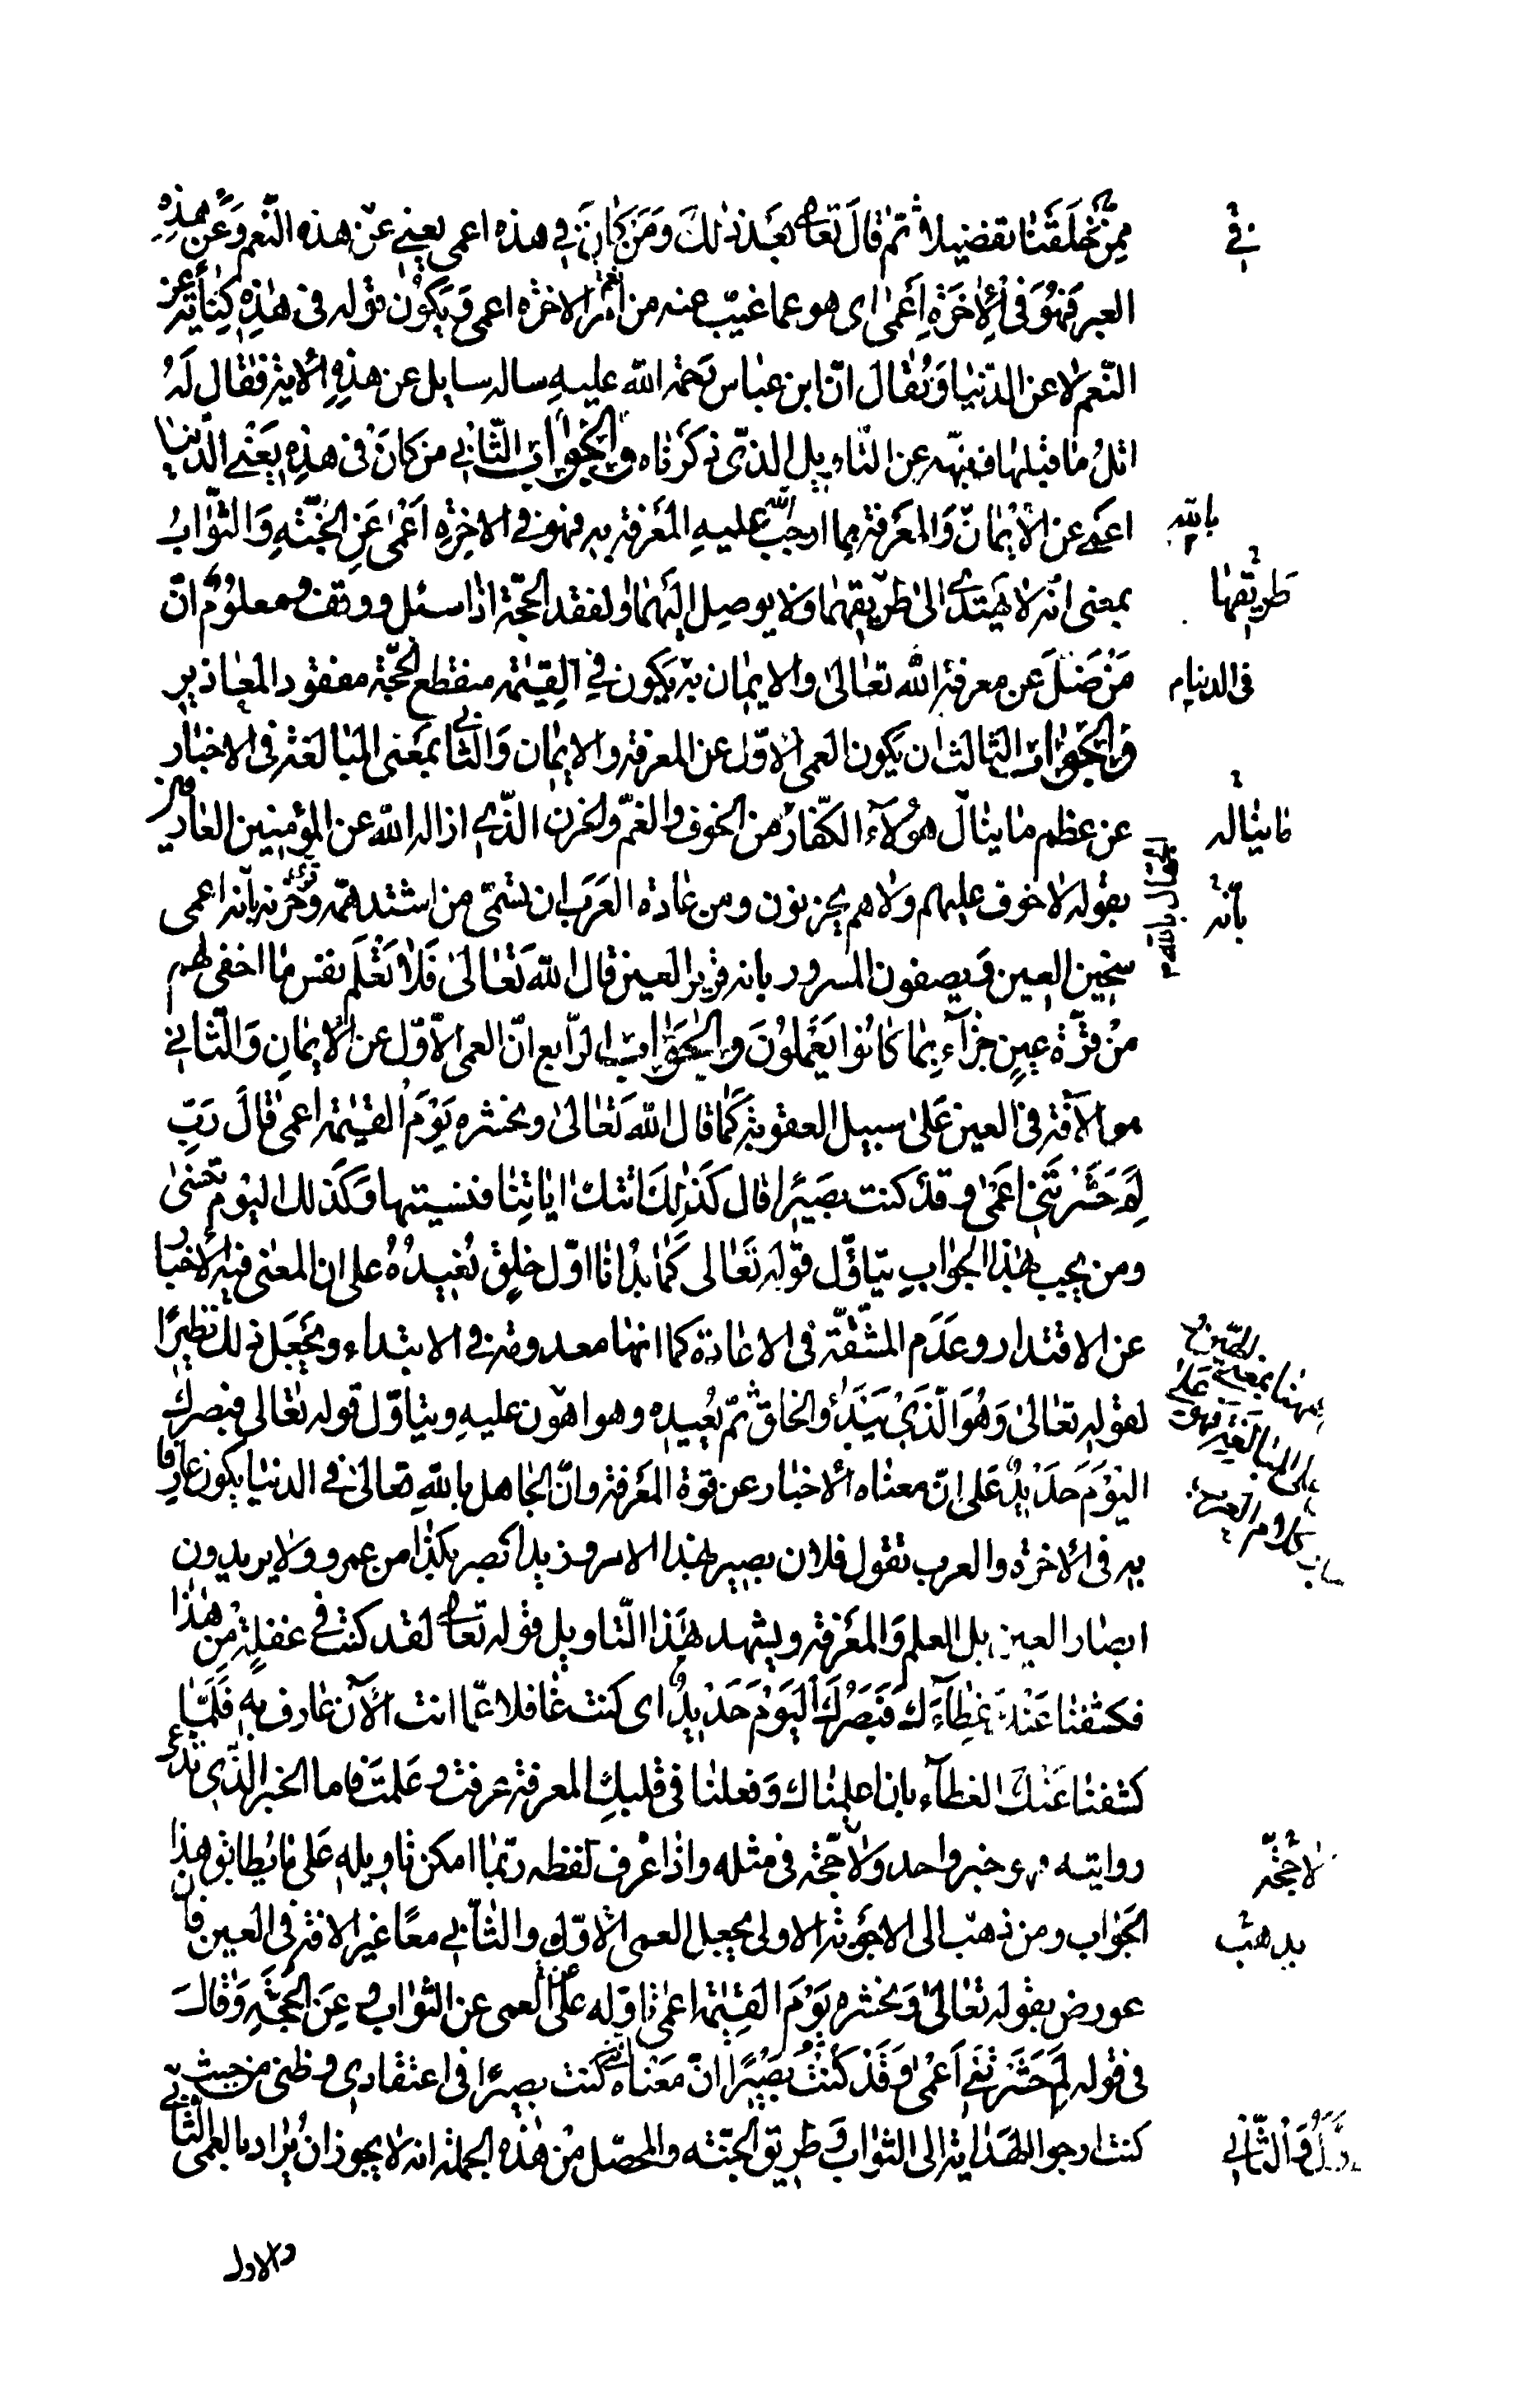 ممن خلقنا تفضيلا ثم قال تعا بعد ذلك ومن كان في هذه اعمى يعني عن هذه النعم وعن هذه
العبر فهو في الاخرة اعمى اى هو عما غيب عنه من امر الاخرة اعمى ويكون قوله فى هذه كناية عن
النعم لا عن الدنيا ويقال ان ابن عباس رحمة الله عليه ساله سايل عن هذه الاية فقال له
اتل ما قبلها فنبهه عن التاويل الذى ذكرناه والجواب الثاني من كان فى هذه يعني الدنيا
اعمى عن الايمان والمعرفة بما اوجب الله عليه المعرفة به فهو في الاخرة اعمى عن الجنة والثواب
بمعنى انه لا يهتدى الى طريقهما ولا يوصل اليهما ولفقد الحجة اذا سئل ووقف ومعلوم ان
من ضل عن معرفة الله تعالى والايمان به يكون في القيمة منقطع الحجة مفقود المعاذير
والجواب الثالث ان يكون العمى الاول عن المعرفة والايمان والثاني بمعنى المبالغة فى الاخبار
عن عظم ما ينال هؤلاء الكفار من الخوف والغم والحزن الذي ازاله الله عن المؤمنين العارفين
بقوله لا خوف عليهم ولا هم يحزنون ومن عادة العرب ان تسمى من اشتد همه وحزنه بانه اعمى
سخين العين ويصفون المسرور بانه قرير العين قال الله تعالى فلا تعلم نفس ما اخفى لهم
من قرة عين جزآء بما كانوا يعملون والجواب الرابع ان العمى الاول عن الايمان والثاني
هو الآفة فى العين على سبيل العقوبة كما قال الله تعالى ونحشره يوم القيمة اعمى قال رب
لم حشرتني اعمى وقد كنت بصيرا قال كذلك اتتك اياتنا فنسيتها وكذلك اليوم تنسى
ومن يجيب بهذا الجواب يتاول قوله تعالى كما بدانا اول خلق نعيده على ان المعنى فيه الاخبار
عن الاقتدار وعدم المشقة فى الاعادة كما انها معدومة في الابتداء ويجعل ذلك نظيرا
لقوله تعالى وهو الذي يبدؤ الخلق ثم يعيده وهو اهون عليه ويتاول قوله تعالى فبصرك
اليوم حديد على ان معناه الاخبار عن قوة المعرفة وان الجاهل بالله تعالى في الدنيا يكون عارفا
به فى الاخرة والعرب تقول فلان بصير بهذا الامر وزيد ابصر بكذا من عمرو ولا يريدون
ابصار العين بل العلم والمعرفة ويشهد بهذا التاويل قوله تعا لقد كنت في غفلة من هذا
فكشفنا عنك غطآءك فبصرك اليوم حديد اى كنت غافلا عما انت الآن عارف به فلما
كشفنا عنك الغطآء بان اعلمناك وفعلنا فى قلبك المعرفة عرفت وعلمت فاما الخبر الذى تدعى
روايته فهو خبر واحد ولا حجة فى مثله واذا عرف لفظه ربما امكن تاويله على ما يطابق هذا
الجواب ومن ذهب الى الاجوبة الاولى يجعل العمى الاول والثاني معا غير الافة فى العين فان
عورض بقوله تعالى ونحشره يوم القيمة اعمى تاوله على العمى عن الثواب وعن الحجة وقال
فى قوله لم حشرتنى اعمى وقد كنت بصيرا ان معناه كنت بصيرا فى اعتقادى وظنى من حيث
كنت ارجو الهداية الى الثواب وطريق الجنة والمحصل من هذه الجملة انه لا يجوز ان يراد بالعمى الثاني
والاول
في
بالله
طريقها
فى الدنيا م
ما يناله
بانه
لا حجة
يذهب
والثاني